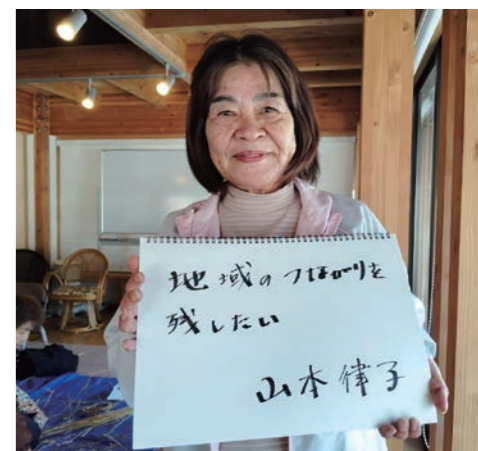 地域のつながりを
残したい
山本律子